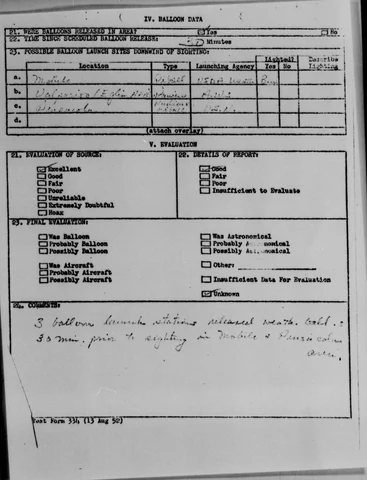 IV. BALLOON DATA
21. WERE BALLOONS RELEASED IN AREA? Yes No
22. TIME SINCE SCHEDULED BALLOON RELEASE: Minutes
23. POSSIBLE BALLOON LAUNCH SITES DOWNWIND OF SIGHTING:
Location Type Launching Agency Lighted? Yes No Describe Lighting
a. Mobile
b.
c. Pensacola
d.
(attach overlay)
V. EVALUATION
21. EVALUATION OF SOURCE: 22. DETAILS OF REPORT:
Excellent Good
Good Fair
Fair Poor
Poor Insufficient to Evaluate
Unreliable
Extremely Doubtful
Hoax
23. FINAL EVALUATION:
Was Balloon Was Astronomical
Probably Balloon Probably
Possibly Balloon Possibly
Was Aircraft Other:
Probably Aircraft
Possibly Aircraft Insufficient Data For Evaluation
Unknown
24. COMMENTS:
3 balloon launch stations released
30 min. prior to sighting in Mobile & Pensacola
area.
Form 334 (13 Aug 52)